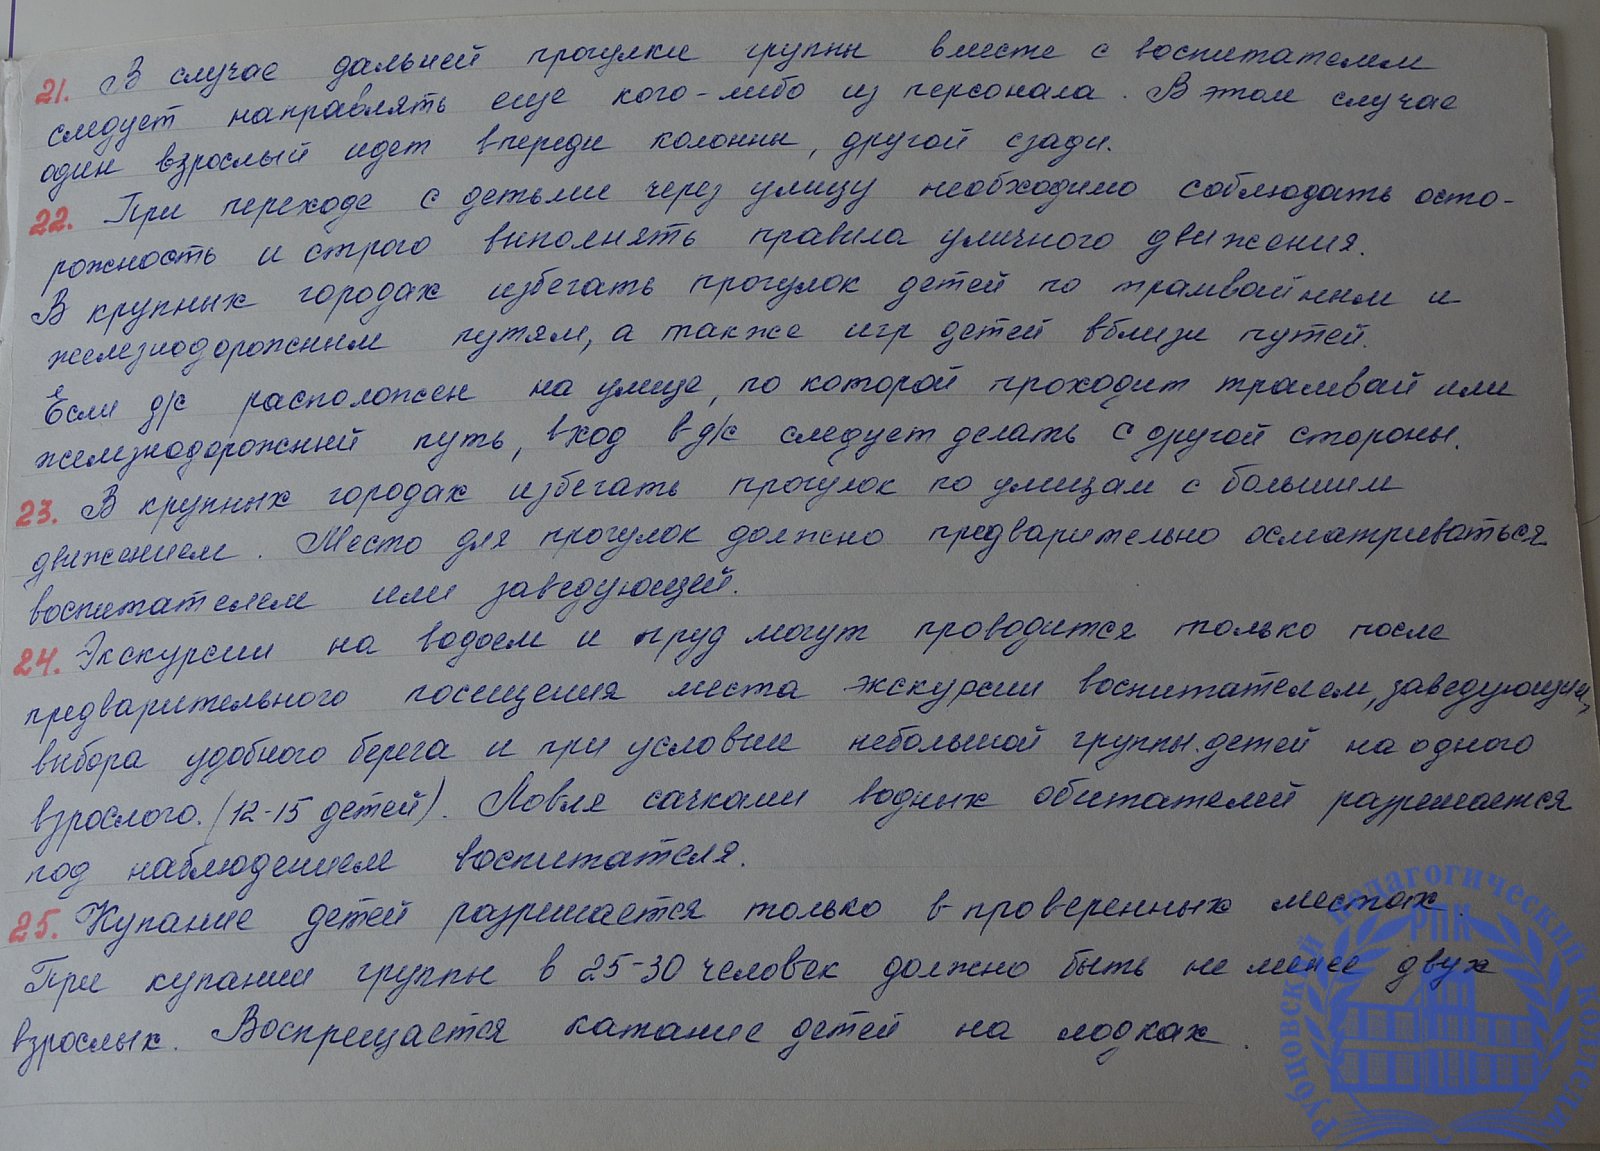 21. В случае дальней прогулки группы вместе с воспитателем
следует направлять еще кого-либо из персонала. В этом случае
один взрослый идет впереди колонны, другой сзади.
22. При переходе с детьми через улицу необходимо соблюдать осто-
рожность и строго выполнять правила уличного движения.
В крупных городах избегать прогулок детей по трамвайным и
железнодорожным путям, а также игр детей вблизи путей.
Если д/с расположен на улице, по которой проходит трамвай или
железнодорожный путь, вход в д/с следует делать с другой стороны.
23. В крупных городах избегать прогулок по улицам с большим
движением. Место для прогулок должно предварительно осматриваться
воспитателем или заведующей.
24. Экскурсии на водоем и пруд могут проводится только после
предварительного посещения места экскурсии воспитателем, заведующим,
выбора удобного берега и при условии небольшой группы детей на одного
взрослого. (12-15 детей). Ловля сачками водных обитателей разрешается
под наблюдением воспитателя.
25. Купание детей разрешается только в проверенных местах.
При купании группы в 25-30 человек должно быть не менее двух
взрослых. Воспрещается катание детей на лодках.
Рубцовский педагогический колледж
РПК